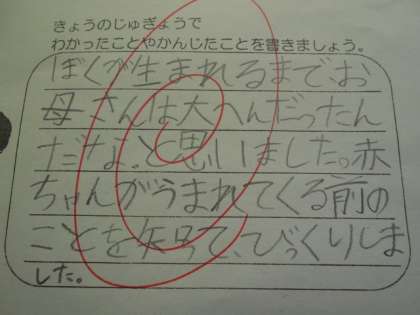 きょうのじゅぎょうで
わかったことやかんじたことを書きましょう。
ぼくが生まれるまで、お
母さんは大へんだったん
だな。と思いました。赤
ちゃんがうまれてくる前の
ことを知って、びっくりしま
した。